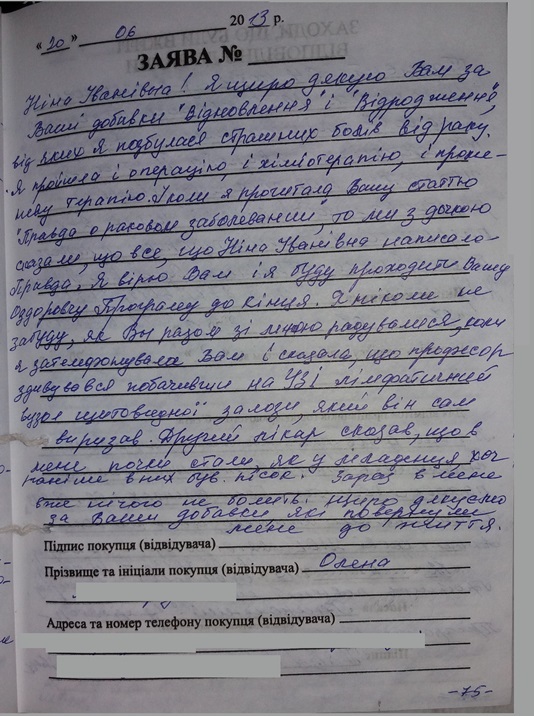 "20" 06 2013 р.
ЗАЯВА №
Ніна Іванівна! Я щиро дякую Вам за
Ваші добавки "Відновлення" і "Відродження",
від яких я позбулася страшних болів від раку.
Я пройшла і операцію, і хіміотерапію, і проме-
неву терапію. І коли я прочитала Вашу статтю
"Правда о раковом заболевании", то ми з дочкою
сказали, що все, що Ніна Іванівна написала -
правда. Я вірю Вам і я буду проходити Вашу
Оздоровчу Програму до кінця. Я ніколи не
забуду, як Ви разом зі мною радувалися, коли
я зателефонувала Вам і сказала, що професор
здивувався побачивши на УЗІ лімфатичний
вузол щитовидної залози, який він сам
вирізав. Другий лікар сказав, що в
мене почки стали, як у младенця, хоч
раніше в них був пісок. Зараз в мене
вже нічого не болить. Щиро дякуємо
за Ваши добавки які повернули
мене до життя.
Підпис покупця (відвідувача)
Прізвище та ініціали покупця (відвідувача) Олена
Адреса та номер телефону покупця (відвідувача)
-75-